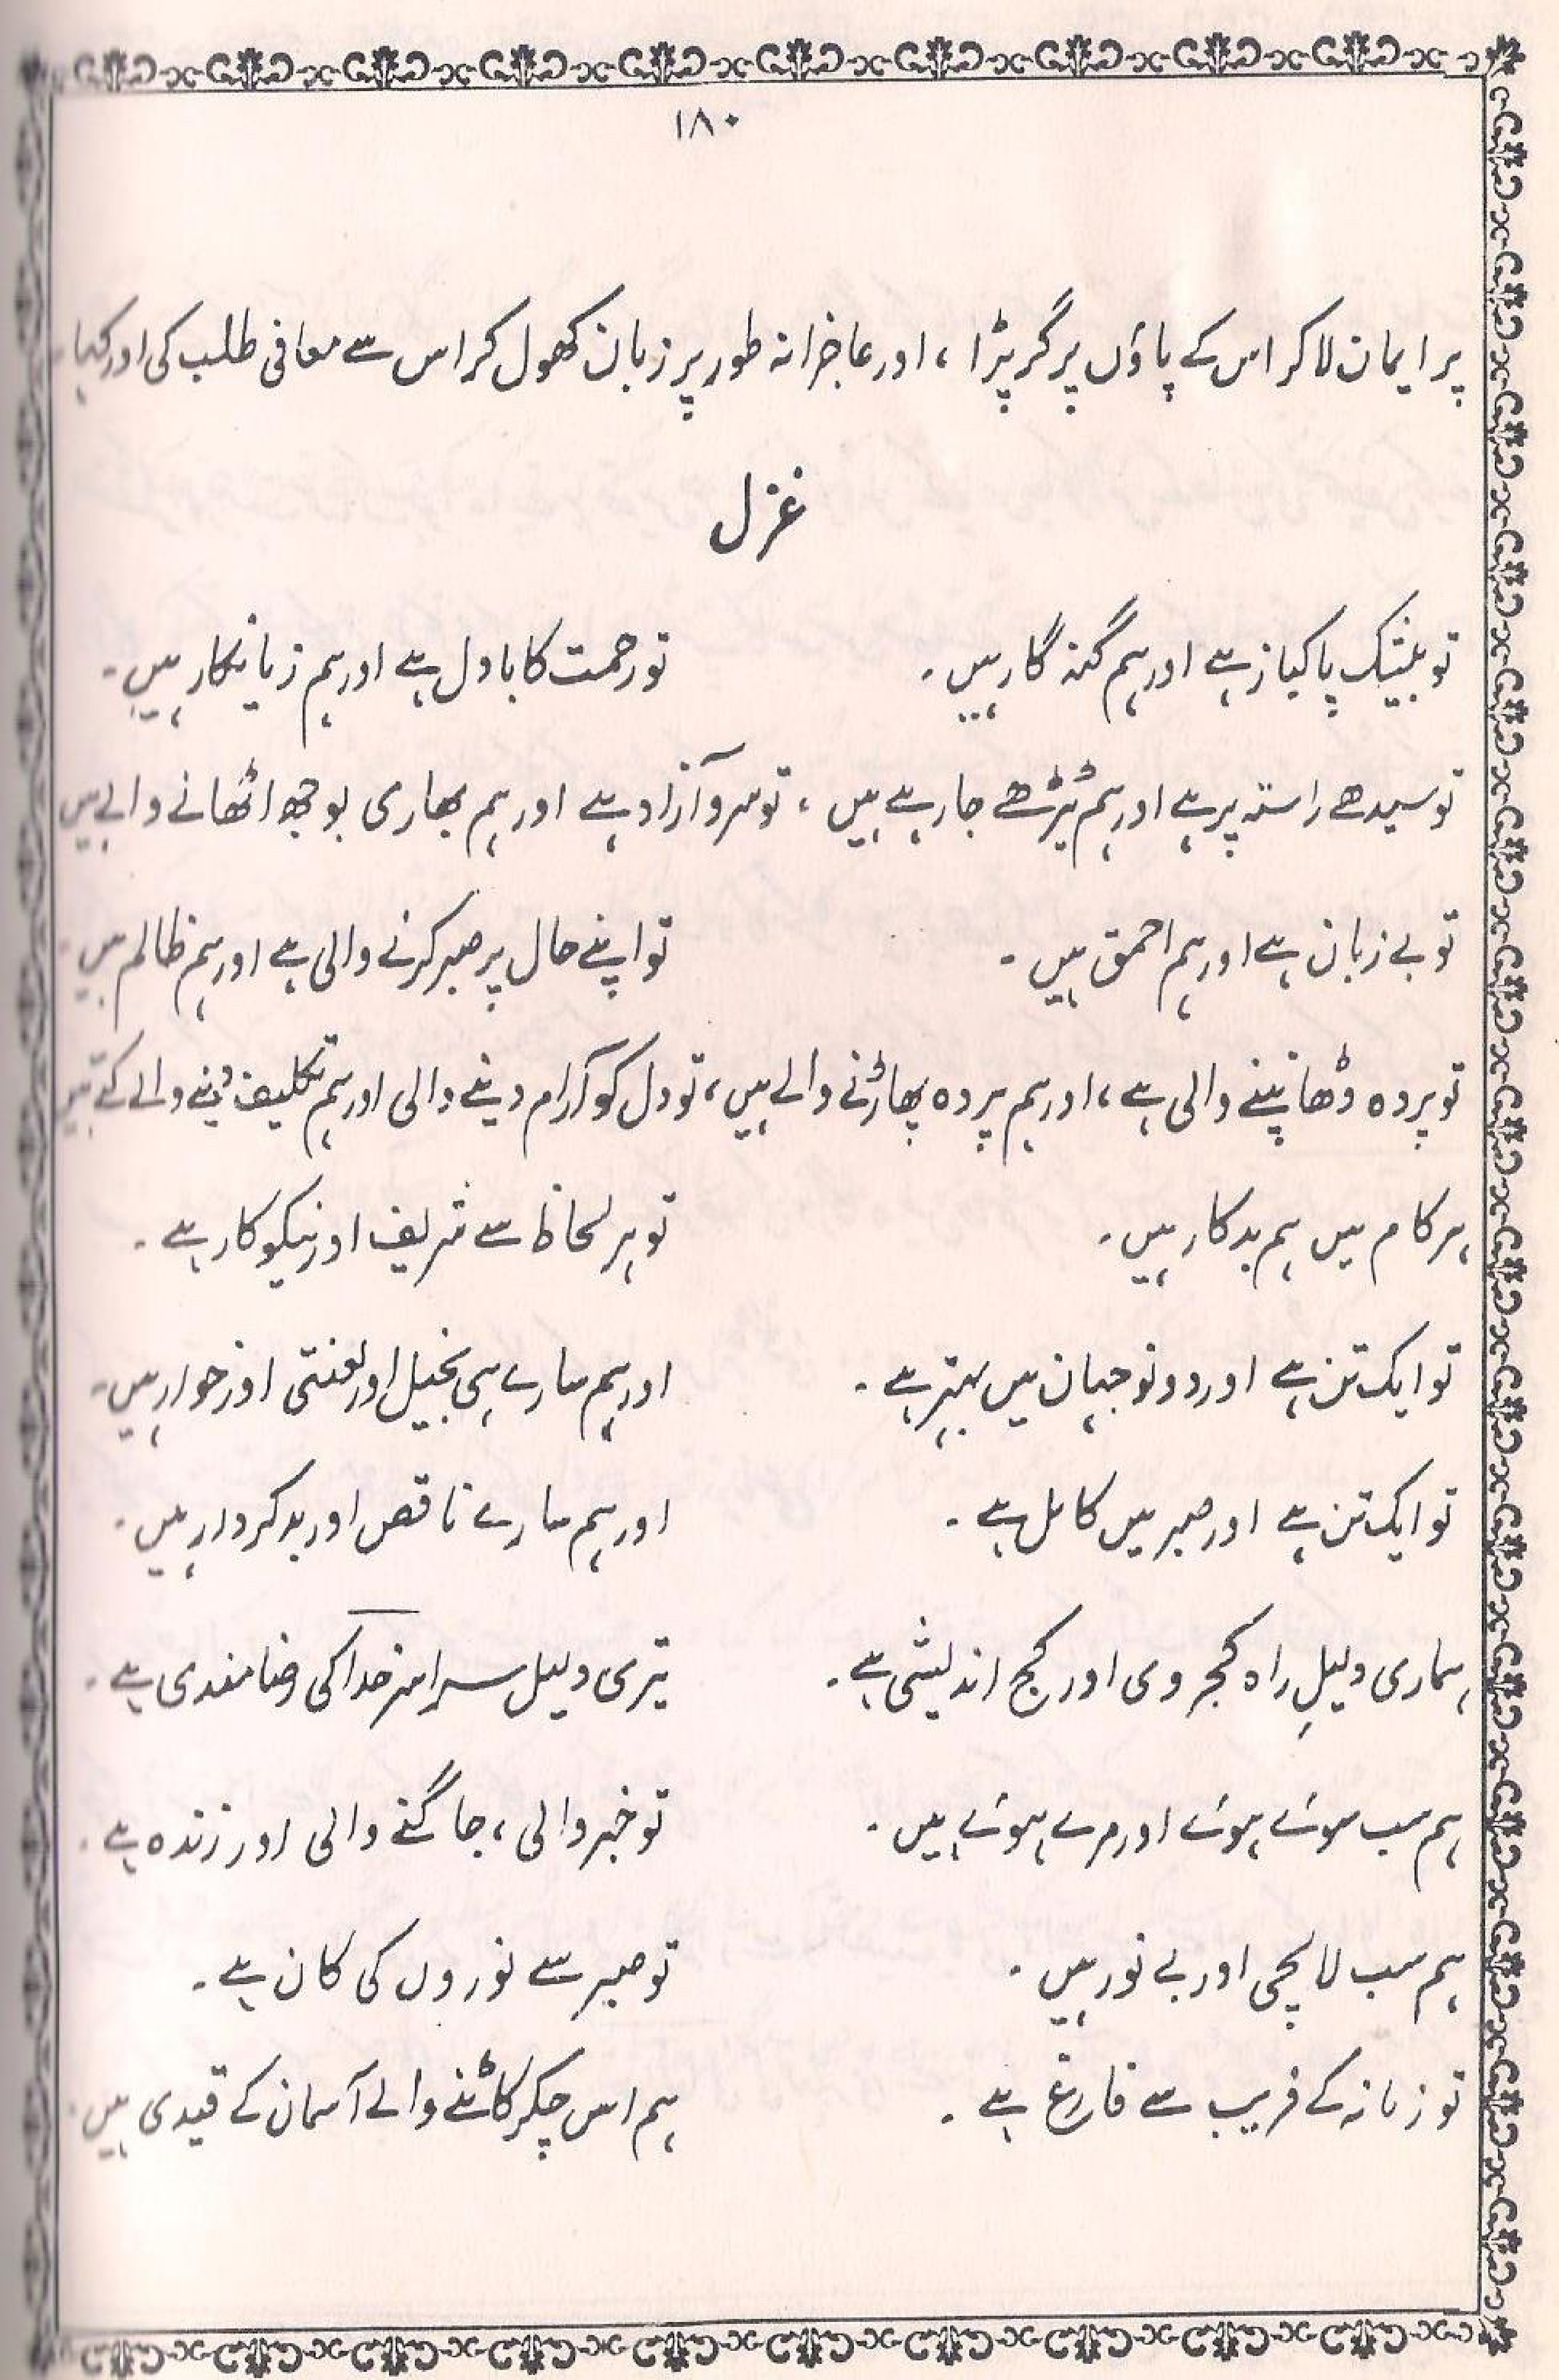 ۱۸۰
پر ایمان لا کر اس کے پاؤں پر گر پڑا ، اور عاجزانہ طور پر زبان کھول کر اس سے معافی طلب کی اور کہا۔
غزل
تو بیشک پاکباز ہے اور ہم گنہ گار ہیں ۔ تو رحمت کا بادل ہے اور ہم زیانکار ہیں ۔
تو سیدھے راستہ پر ہے اور ہم ٹیڑھے جا رہے ہیں ، تو سرو آزاد ہے اور ہم بھاری بوجھ اٹھانے والے ہیں
تو بے زبان ہے اور ہم احمق ہیں ۔ تو اپنے حال پر صبر کرنے والی ہے اور ہم ظالم ہیں ۔
تو پردہ ڈھانپنے والی ہے ، اور ہم پردہ پھاڑنے والے ہیں ، تو دل کو آرام دینے والی اور ہم تکلیف دینے والے کتے ہیں
ہر کام میں ہم بدکار ہیں ۔ تو ہر لحاظ سے شریف اور نیکوکار ہے ۔
تو ایک تن ہے اور دونو جہان میں بہتر ہے ۔ اور ہم سارے ہی بخیل اور لعنتی اور خوار ہیں ۔
تو ایک تن ہے اور صبر میں کامل ہے ۔ اور ہم سارے ناقص اور بدکردار ہیں ۔
ہماری دلیلِ راہ کجروی اور کج اندیشی ہے ۔ تیری دلیل سراسر خدا کی رضامندی ہے ۔
ہم سب سوئے ہوئے اور مرے ہوئے ہیں ۔ تو خبر والی ، جاگنے والی اور زندہ ہے ۔
ہم سب لالچی اور بے نور ہیں ۔ تو صبر سے نوروں کی کان ہے ۔
تو زمانہ کے فریب سے فارغ ہے ۔ ہم اس چکر کاٹنے والے آسمان کے قیدی ہیں ۔